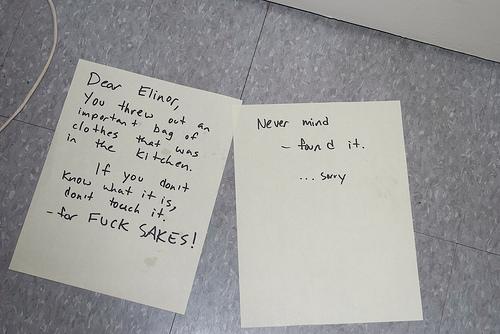 Dear Elinor,
You threw out an
important bag of
clothes that was
in the kitchen.
If you don't
know what it is,
don't touch it.
- for FUCK SAKES!
Never mind
- found it.
... sorry